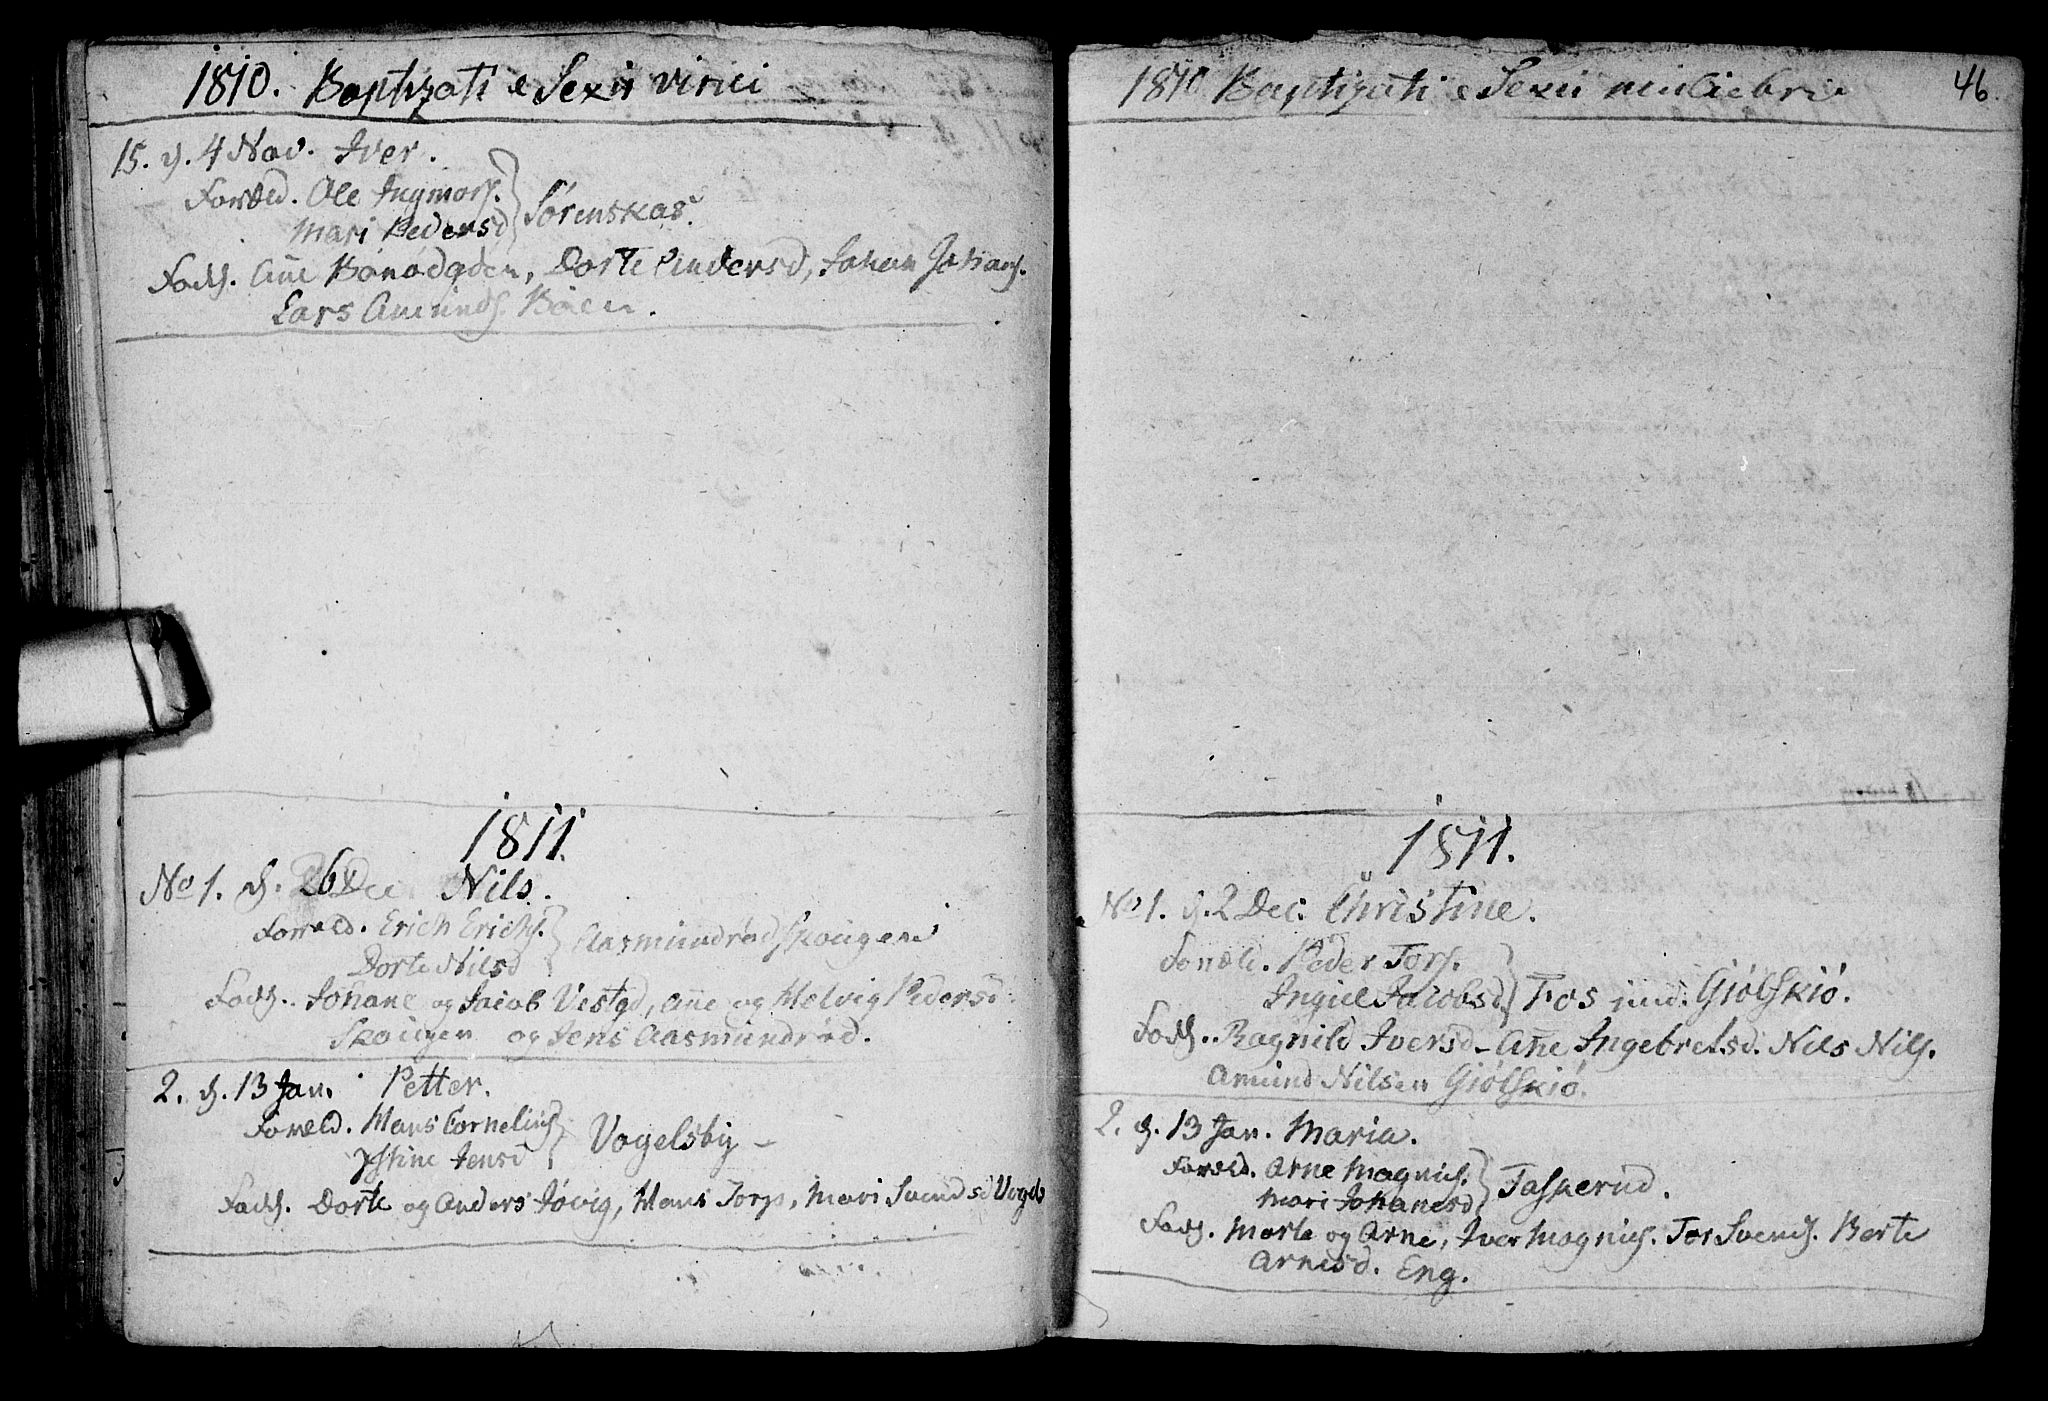 1810. Baptizati e Sexu virili
15. d. 4 Nov. Iver.
Foræld. Ole Ingmors.
Mari Pedersd
Sørenskas.
Fadd. Añe Dorte Andersd, Johan Johans.
Lars Amunds. Böen.
1811.
No 1. d. 26 Dec Nils.
Foræld. Erich Erichs.
Dorte Nilsd
Aasmundrød skougene
Fadd. Johane og Jacob Vestgd, Añe og Helvig Pedersd
Skougen og Jens Aasmundrød.
2. d. 13 Jan. Petter.
Foræld. Hans Cornelius
Jensd
Vogelsby
Fadd. Dorte og Anders Jøvig, Hans Torp, Mari Svendsd Vogels
1810 Baptizati e Sexu muliebri
46
1811.
No 1. d. 2 Dec. Christine.
Foræld. Peder Tors.
Ingiel Jacobsd
Fos und. Gjølskiö.
Fadd. Ragnild Iversd - Añe Ingebretsd. Nils Nils.
Amund Nilsen Gjølskiö.
2. d. 13 Jan. Maria.
Foræld. Arne Magnus.
Mari Johanesd
Taskerud.
Fadd. Marte og Arne, Iver Magnus. Tor Svends. Berte
Arnesd. Eng.